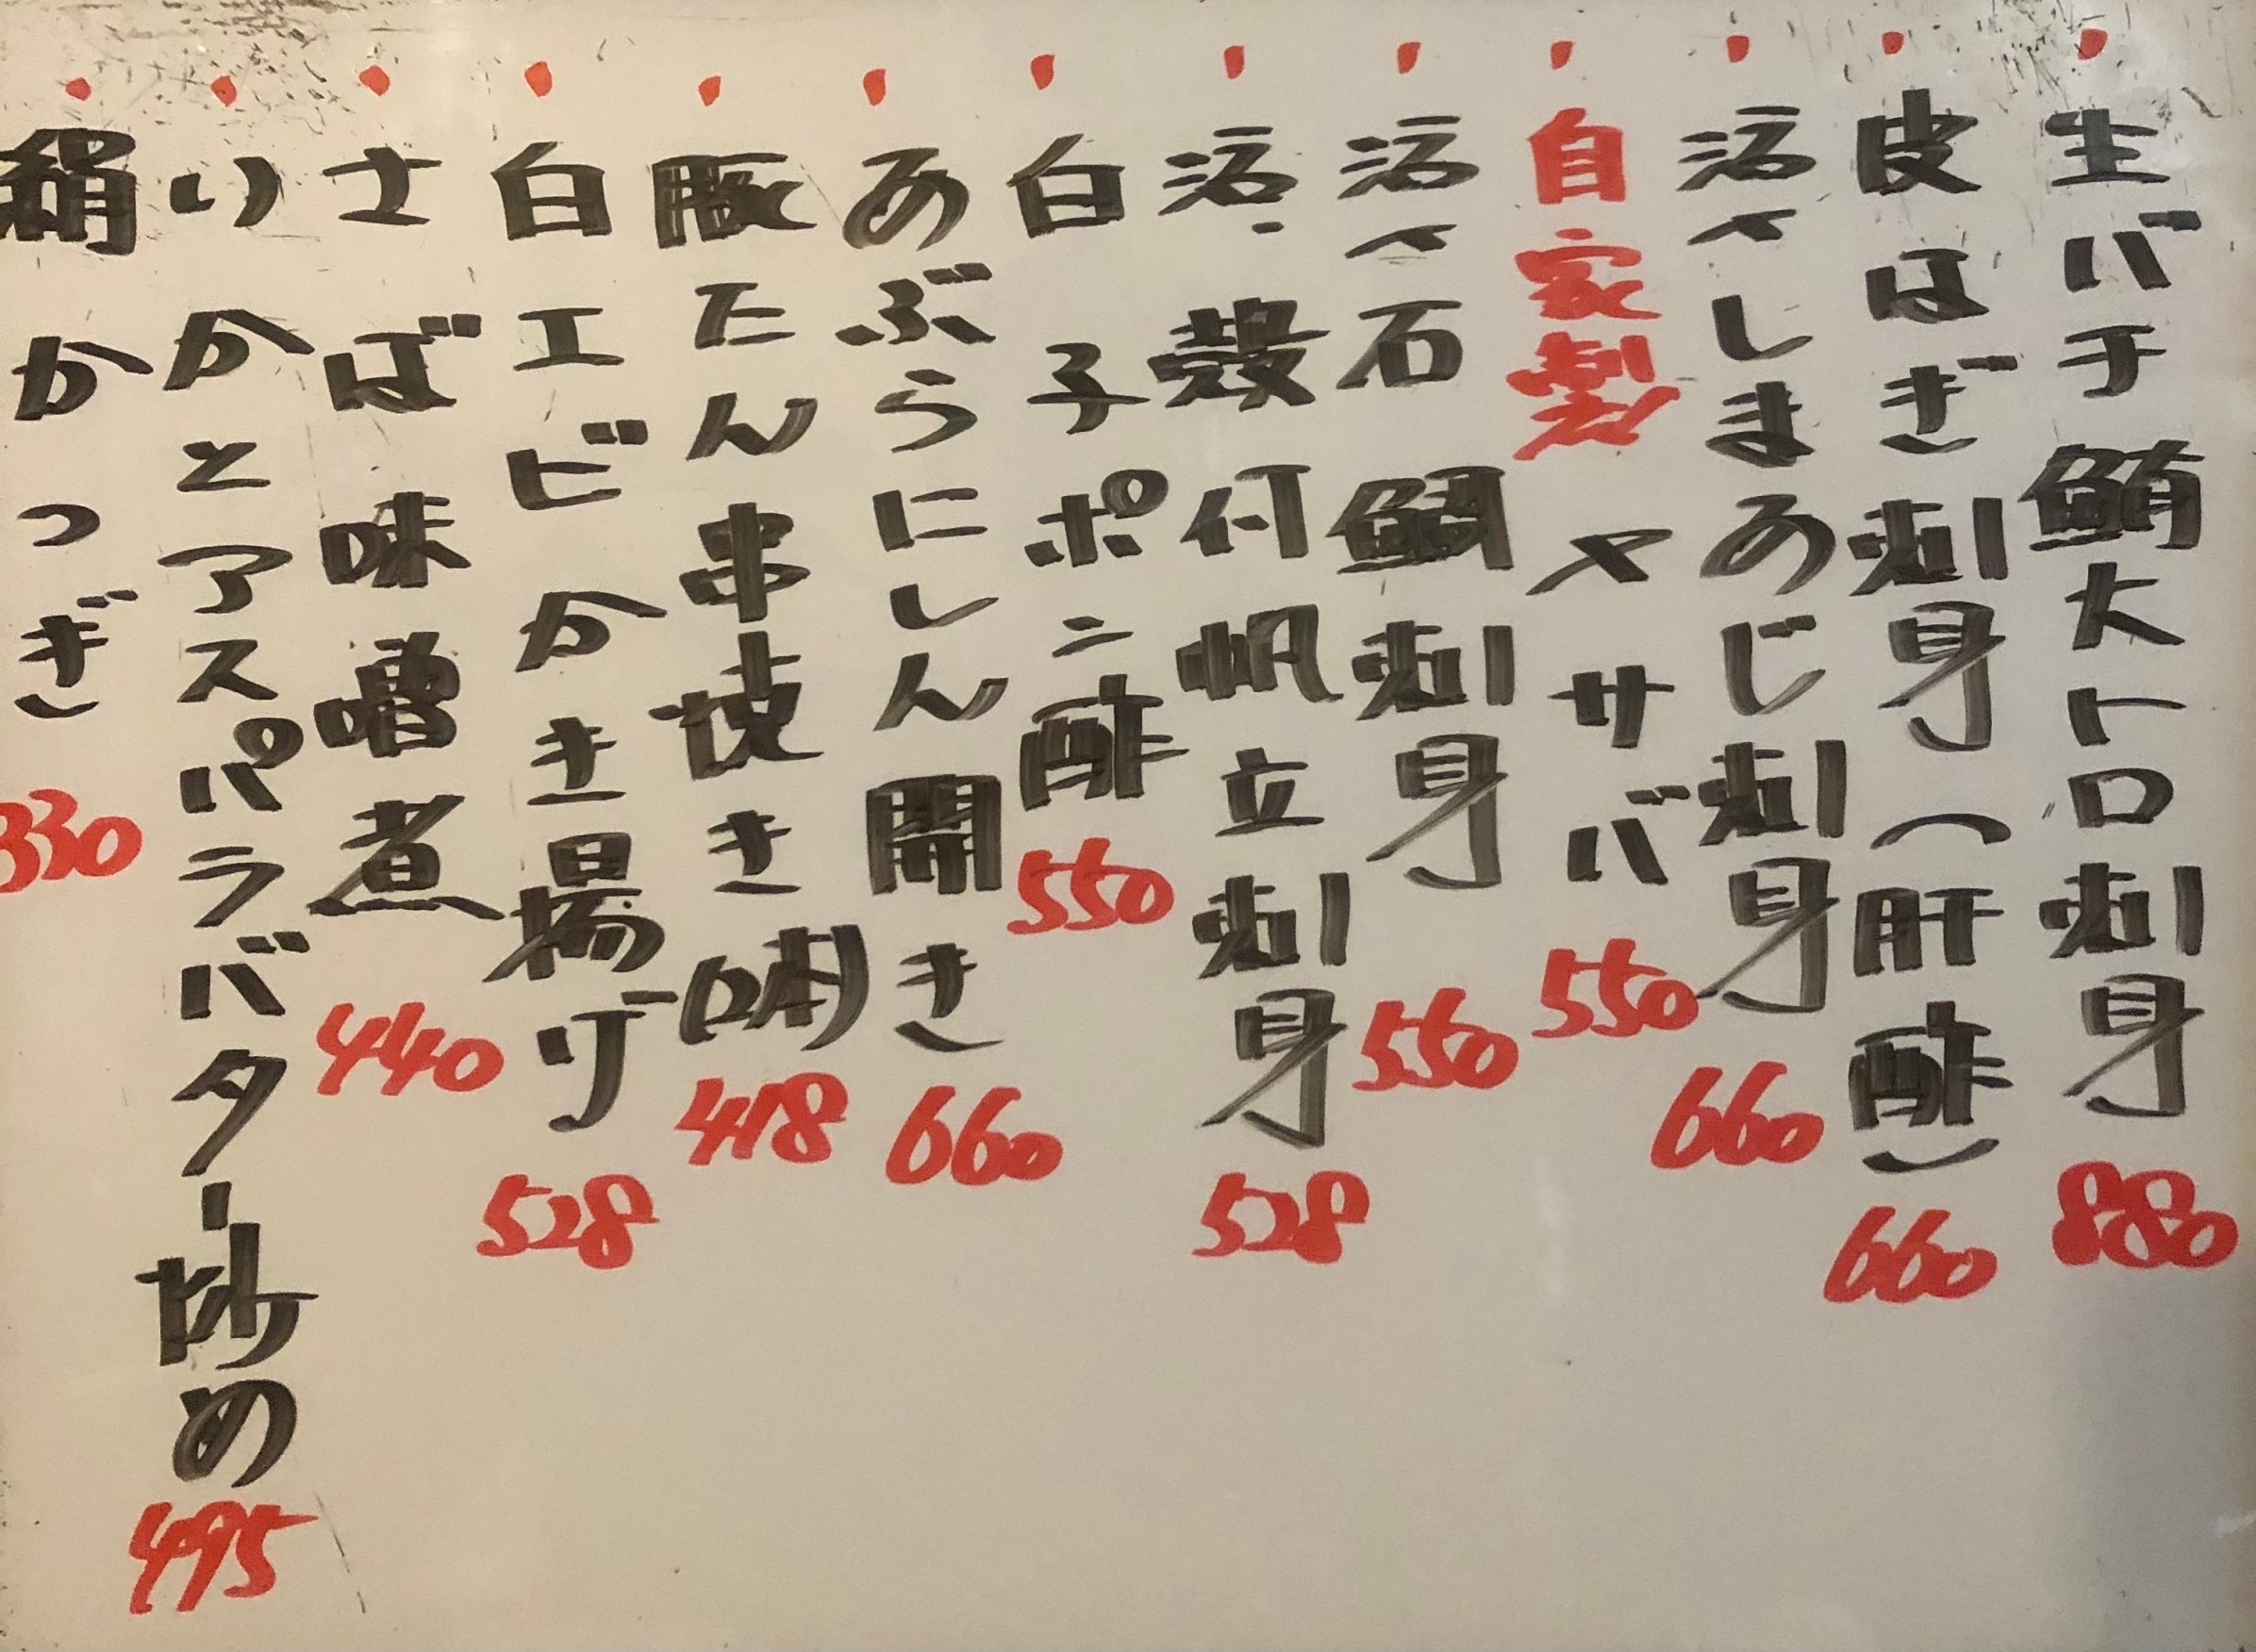 生バチ鮪大トロ刺身 880
皮はぎ刺身(肝酢) 660
活〆しまあじ刺身 660
自家製〆サバ 550
活〆石鯛刺身 550
活・殻付帆立刺身 528
白子ポン酢 550
あぶらにしん開き 660
豚たん串焼き(2本) 418
白エビかき揚げ 528
さば味噌煮 440
いかとアスパラバター炒め 495
絹かつぎ 330